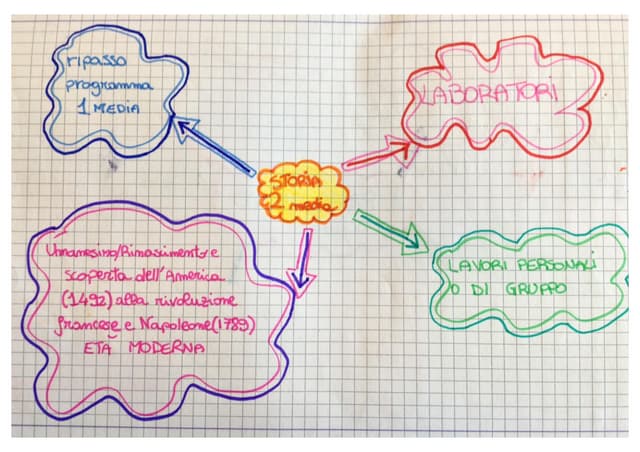 ripasso
programma
1 MEDIA
LABORATORI
STORIA
2 media
Umanesimo/Rinascimento e
scoperta dell'America
(1492) alla rivoluzione
francese e Napoleone (1789)
ETÀ MODERNA
LAVORI PERSONALI
O DI GRUPPO